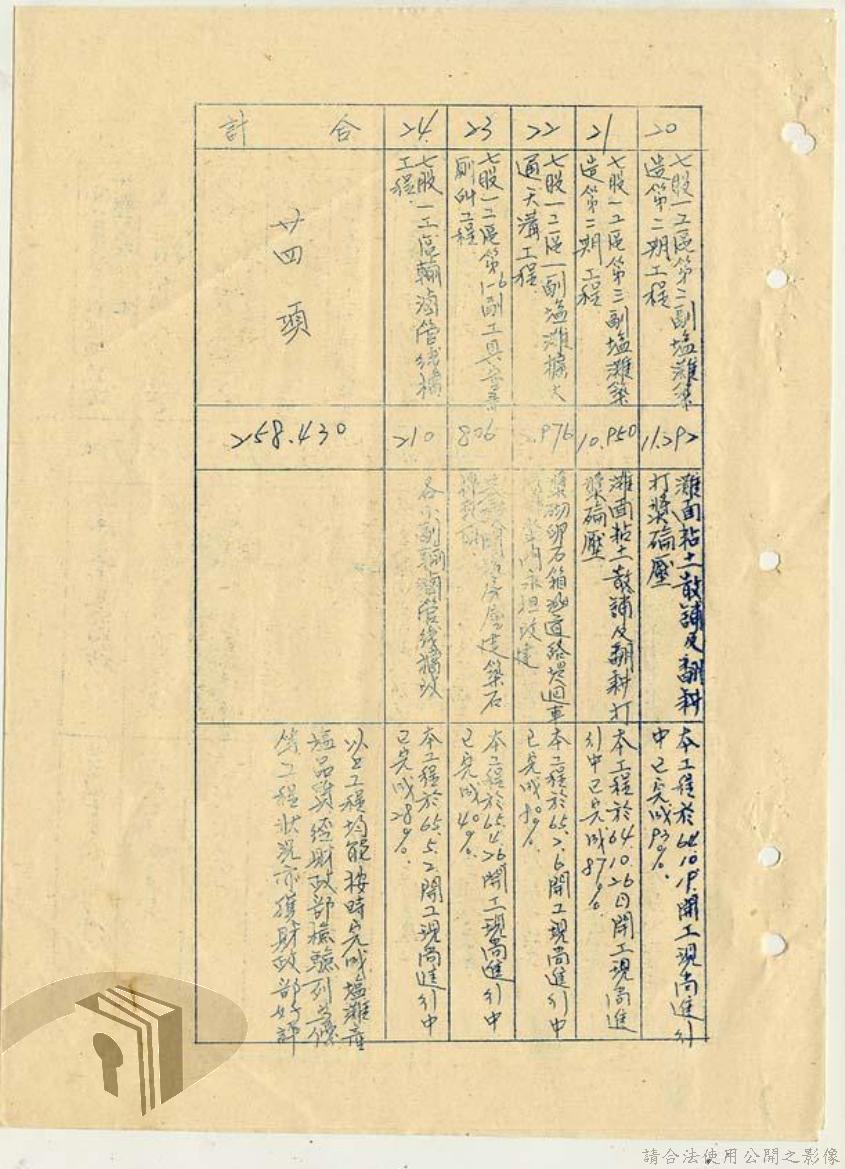 20
七股一工區第二副塩灘築
造第二期工程
11.292
灘面粘土散舖及翻耕
打漿碖壓
本工程於64.10.19.開工現尚進行
中已完成93%.
21
七股一工區第三副塩灘築
造第二期工程
10.950
灘面粘土散舖及翻耕打
漿碖壓
本工程於64.10.26日開工現尚進
行中已完成87%.
22
七股一工區一副塩灘擴大
通天溝工程
漿砌卵石箱涵道路堤迴車
改建
本工程於65.2.6開工現尚進行中
已完成
23
七股一工區第1-6副工具室暨
廁所工程
806
房屋建築石
本工程於65.4.26開工現尚進行中
已完成40%.
24.
七股一工區輸滷管线橋
工程.
210
各小副輸滷管线橋改
本工程於65.5.2.開工現尚進行中
已完成28%.
合計
廿四項
258.430
以上工程均能按時完成塩灘產
塩品質經財政部檢驗列為優
等工程狀況亦獲財政部好評
請合法使用公開之影像